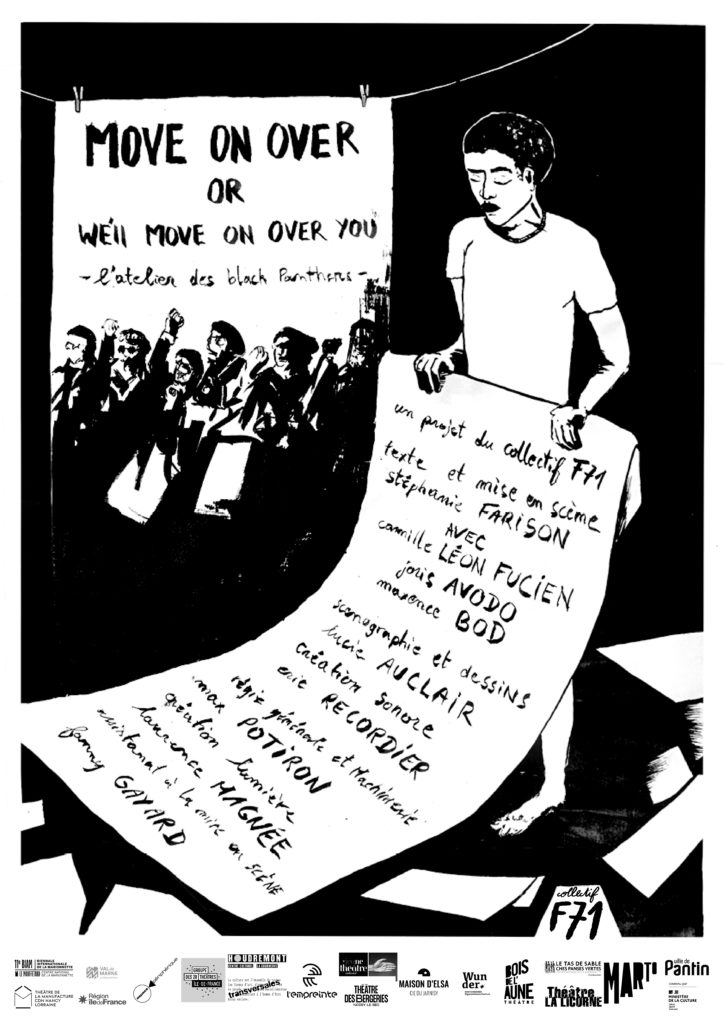 MOVE ON OVER
OR
WE'll MOVE ON OVER YOU
- l'atelier des black Panthers -
un projet du collectif F71
texte et mise en scène
stéphanie FARISON
AVEC
camille LÉON FUCIEN
joris AVODO
maxence BOD
scénographie et dessins
lucie AUCLAIR
création sonore
eric RECORDIER
régie générale et Machinerie
max POTIRON
création lumière
laurence MAGNÉE
assistanat à la mise en scène
fanny GAYARD
collectif
F71
11e BIAM
BIENNALE
INTERNATIONALE
DE LA MARIONNETTE
CENTRE NATIONAL
DE LA MARIONNETTE
VAL DE
MARNE
périphérique
GROUPE
DES 20 THÉÂTRES
ÎLE-DE-FRANCE
HOUDREMONT
transversales
l'empreinte
théâtre
THÉÂTRE
DES BERGERIES
NOISY-LE-SEC
MAISON D'ELSA
CIE DU JARNISY
Wun
der.
BOIS
DE L'AUNE
THÉÂTRE
LE TAS DE SABLE
CHES PANSES VERTES
Théâtre
LA LICORNE
MARTO
ville de
Pantin
MINISTÈRE
DE LA CULTURE
THÉÂTRE DE
LA MANUFACTURE
CDN NANCY
LORRAINE
Région
île de France